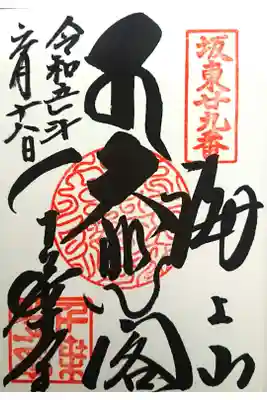 坂東廿九番
海上山
大悲閣
千葉寺
令和五年
六月十八日